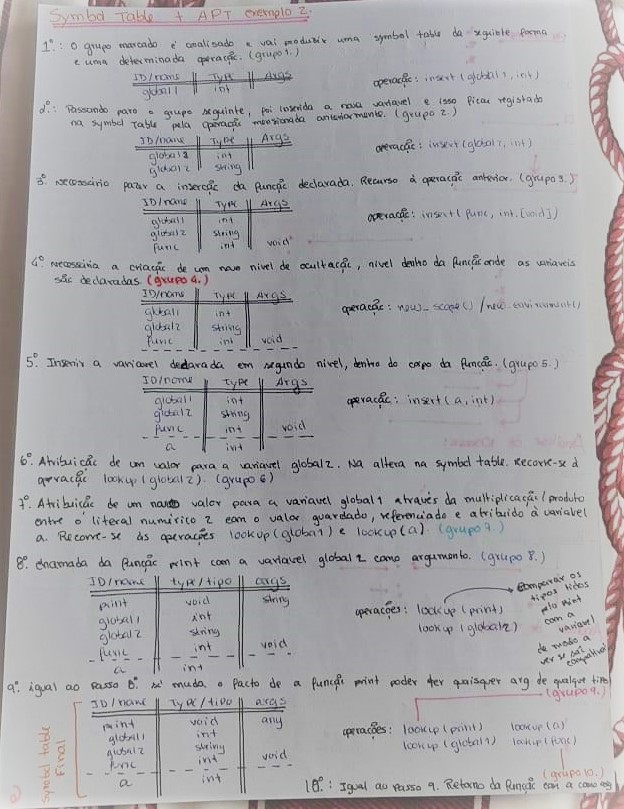 Symbol Table + APT exemplo 2.
1º.: O grupo marcado é analisado e vai produzir uma symbol table da seguinte forma
e uma determinada operação. (grupo 1.)
ID/name Type Args
global1 int
operação: insert (global1, int)
2º.: Passando para o grupo seguinte, foi inserida a nova variavel e isso ficou registado
na symbol Table pela operação mensionada anteriormente. (grupo 2.)
ID/name Type Args
global1 int
global2 string
operação: insert (global2, int)
3º necessário parar a inserção da função declarada. Recurso à operação anterior. (grupo 3.)
ID/name Type Args
global1 int
global2 string
func int void
operação: insert ( func, int, [void])
4º necessária a criação de um novo nivel de ocultação, nivel dentro da função onde as variaveis
são declaradas. (grupo 4.)
ID/name Type Args
global1 int
global2 string
func int void
operação: new_scope() / new environment()
5º. Inserir a variavel declarada em segundo nivel, dentro do corpo da função. (grupo 5.)
ID/name Type Args
global1 int
global2 string
func int void
a int
operação: insert (a, int)
6º. Atribuição de um valor para a variavel global2. Na altera na symbol table. Recorre-se à
operação lookup (global2). (grupo 6)
7º. Atribuição de um novo valor para a variavel global1 através da multiplicação / produto
entre o literal numérico 2 com o valor guardado, referenciado e atribuido à variabel
a. Recorre-se às operações lookup (global1) e lookup (a). (grupo 7.)
8º. chamada da função print com a variavel global2 como argumento. (grupo 8.)
ID/name type/tipo args
print void string
global1 int
global2 string
func int void
a int
operações: lookup (print)
lookup (global2)
comparar os
tipos tidos
pelo print
com a
variavel
de modo a
ver se são
compativeis
9º. igual ao passo 8º. só muda o facto de a função print poder ter quaisquer arg de qualquer tipo
(grupo 9.)
Symbol table
Final
ID/name Type/tipo args
print void any
global1 int
global2 string
func int void
a int
operações: lookup (print) lookup (a)
lookup (global1) lookup (func)
(grupo 10.)
10º.: Igual ao passo 9. Retorno da função com a